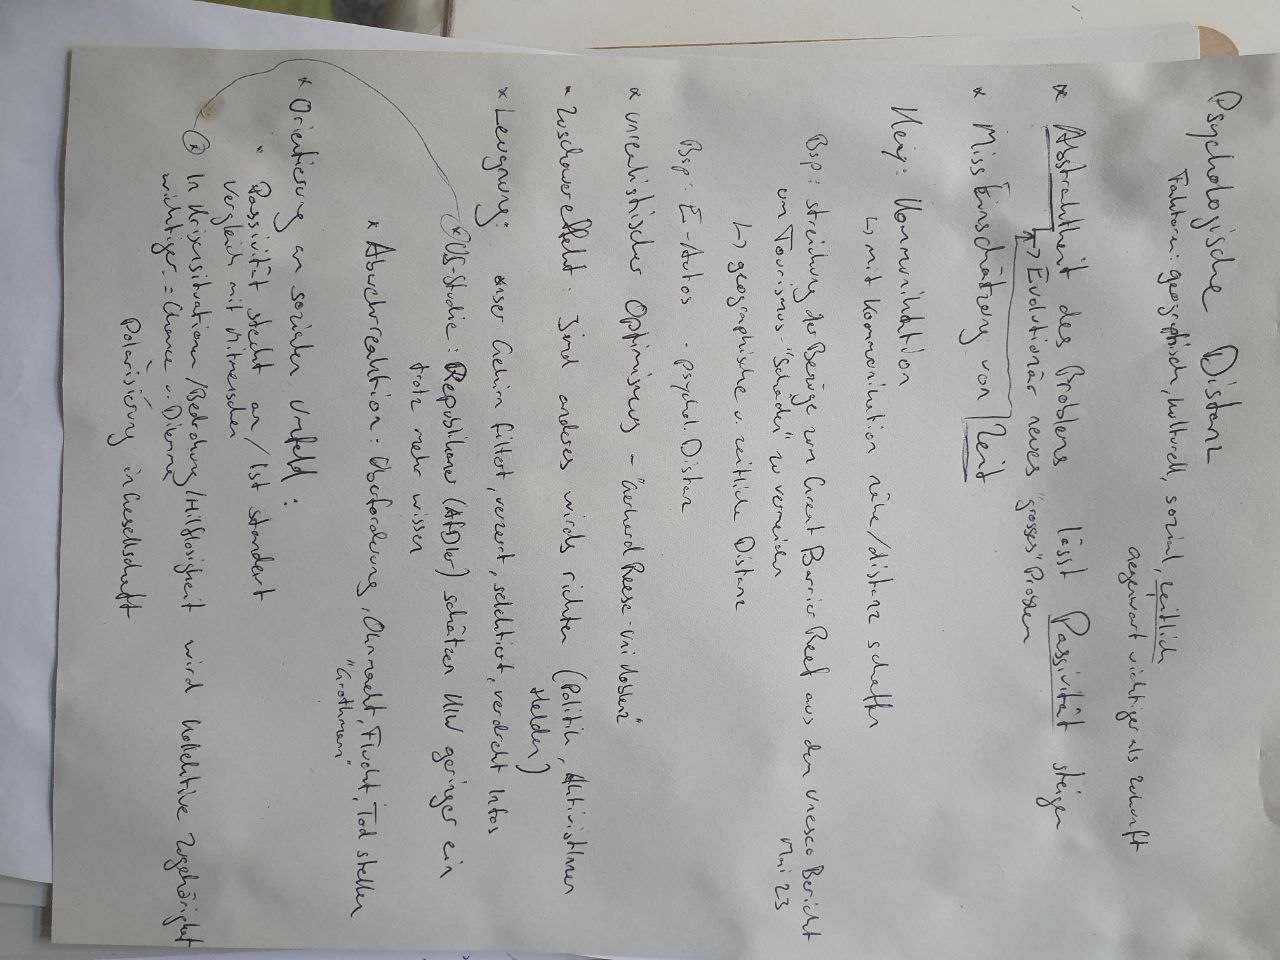 Psychologische Distanz
Faktoren: geographisch, kulturell, sozial, zeitlich
Gegenwart wichtiger als Zukunft
* Abstraktheit des Problems lässt Passivität steigen
↳ Evolutionär neues "grosses" Problem
* Miss Einschätzung von Zeit
Kommunikation
↳ mit Kommunikation nähe/distanz schaffen
Bsp: streichung der Bezüge zum Great Barrier Reef aus dem Unesco Bericht
um Tourismus-"Schaden" zu vermeiden
Mai 23
↳ geographische u. zeitliche Distanz
Bsp: E-Autos - psychol. Distanz
* unrealistischer Optimismus - "Gerhard Reese - uni
* Zuschauereffekt: Sind anderes wirds richten (Politik, AktivistInnen
Helden)
* Leugnung: * unser Gehirn filtert, verzerrt, selektiert, verdreht Infos
* US-Studie: Republikaner (AfDler) schätzen KW geringer ein
trotz mehr wissen
* Abwehrreaktion: Überforderung, Ohnmacht, Flucht, Tod stellen
"Grothmann"
* Orientierung an sozialen Umfeld:
* Passivität steckt an / ist standert
Vergleich mit Mitmenschen
* In Krisensituationen/Bedrohung/Hilflosigkeit wird kollektive Zugehörigkeit
wichtiger = Chance u. Dilemma
Polarisierung in Gesellschaft